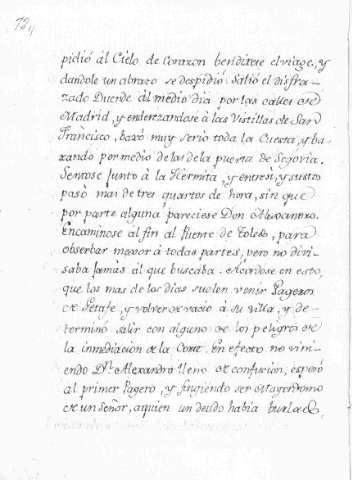 72,,
pidió ál Cielo de Corazon bendixese el viage, y
dandole un abrazo se despidió. Salió el disfra-
zado Duende ál medio dia por las calles de
Madrid, y enderezandose à las Vistillas de San
Francisco, baxó muy serio toda la Cuesta, y ba-
xando por medio de las de la puerta de Segovia.
Sentose junto à la Hermita, y entre si, y sustos
pasò mas de tres quartos de hora, sin que
por parte alguna pareciese Don Alexandro.
Encaminose al fin al Puente de Toledo, para
obserbar mexor à todas partes, pero no divi-
saba jamas ál que buscaba. Acordose en esto,
que los mas de los dias suelen venir Pageros
de Getafe, y volver de vacio à su villa, y de-
terminó salir con alguno de los peligros de
la inmediacion de la Corte. En efecto no vini-
endo Dn. Alexandro lleno de confusion, esperó
al primer Pagero, y fingiendo ser
de un Señor, aquien un deudo habia burlado,